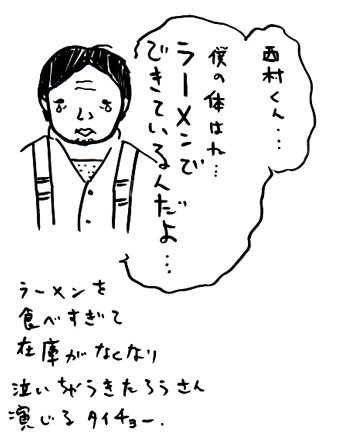 西村くん…
僕の体はね…
ラーメンで
できているんだよ…
ラーメンを
食べすぎて
在庫がなくなり
泣いちゃうきたろうさん
演じるタイチョー.